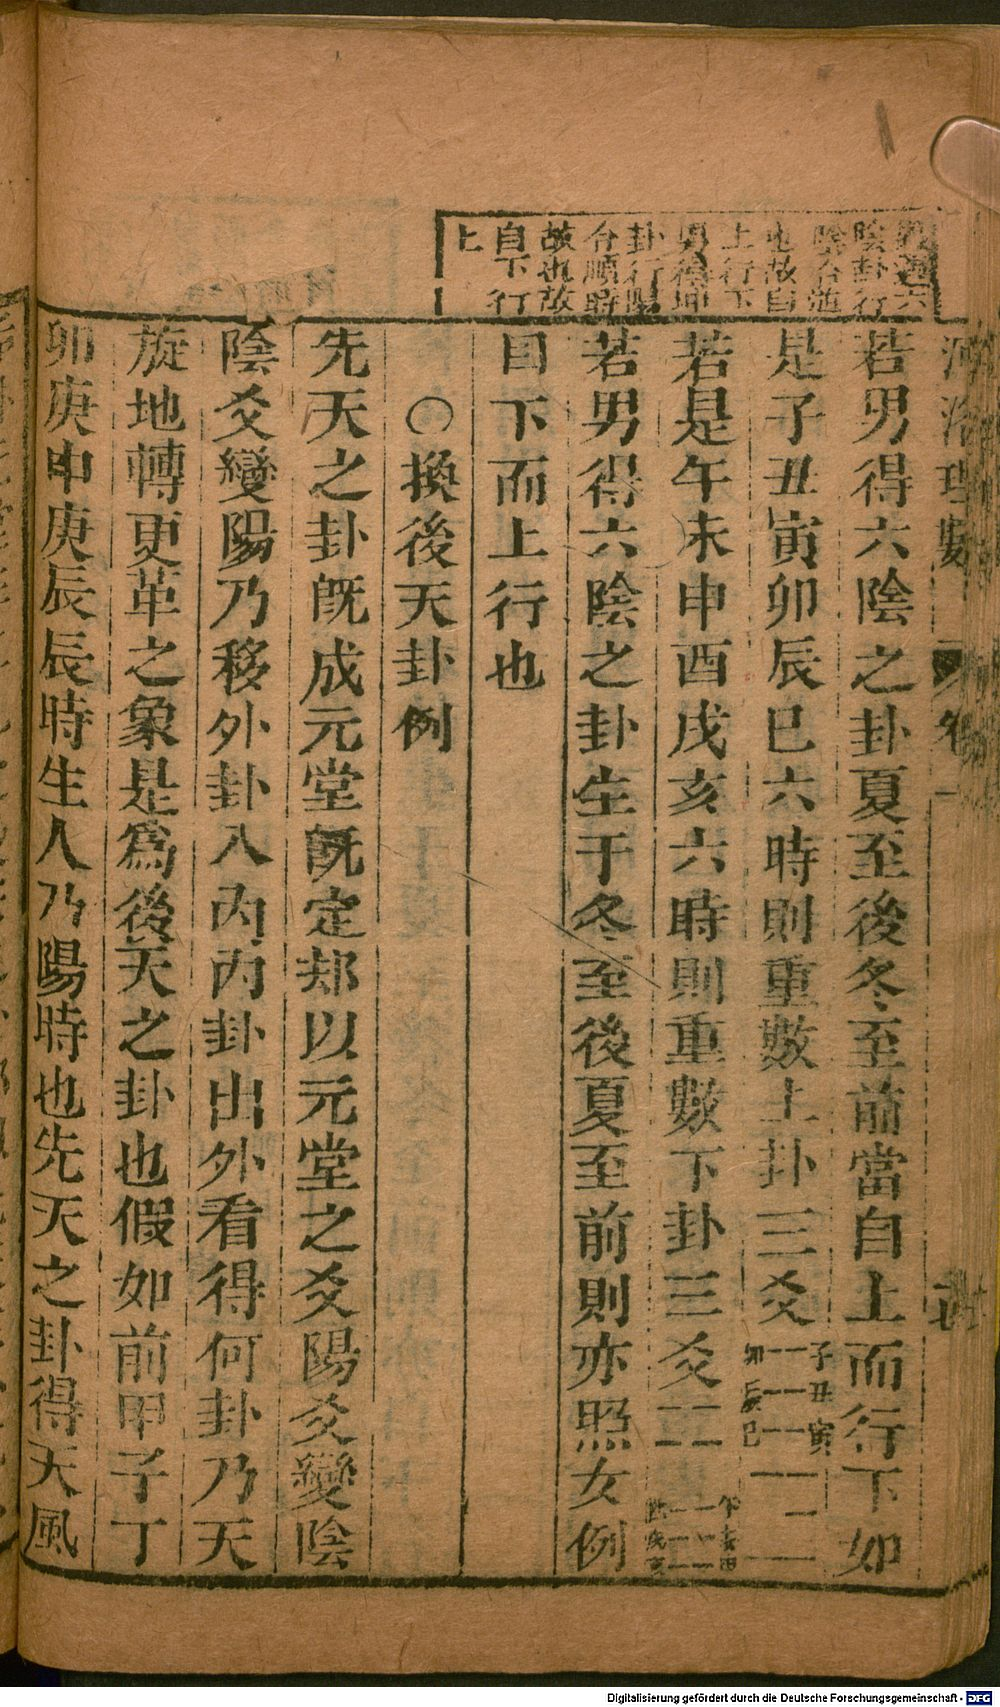 河洛理數
卷一
陰卦行
陰令逆
也故自
上行下
男得坤
卦行陽
令順時
故也故
自下行
上
若男得六陰之卦夏至後冬至前當自上而行下如
是子丑寅卯辰巳六時則重數上卦三爻
子丑寅
卯辰巳
若是午未申酉戌亥六時則重數下卦三爻
午未申
酉戌亥
若男得六陰之卦生于冬至後夏至前則亦照女例
自下而上行也
〇換後天卦例
先天之卦既成元堂既定却以元堂之爻陽爻變陰
陰爻變陽乃移外卦入內內卦出外看得何卦乃天
旋地轉更革之象是爲後天之卦也假如前甲子丁
卯庚申庚辰辰時生人乃陽時也先天之卦得天風
Digitalisierung gefördert durch die Deutsche Forschungsgemeinschaft - DFG